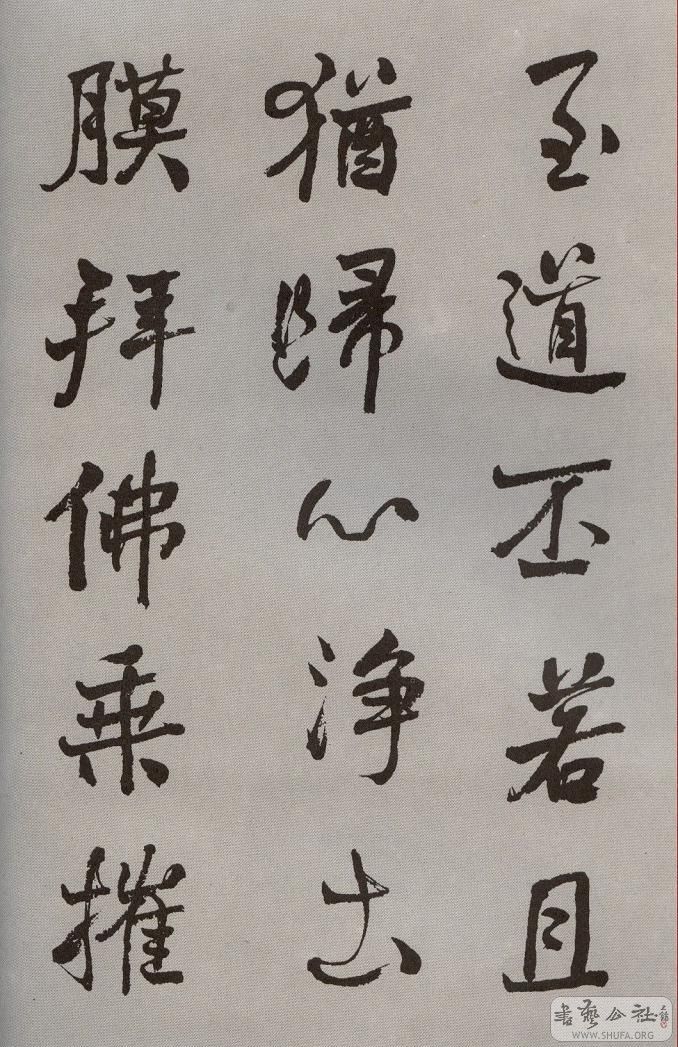 至道丕若且
猶歸心淨土
膜拜佛乘摧
書藝公社
WWW.SHUFA.ORG